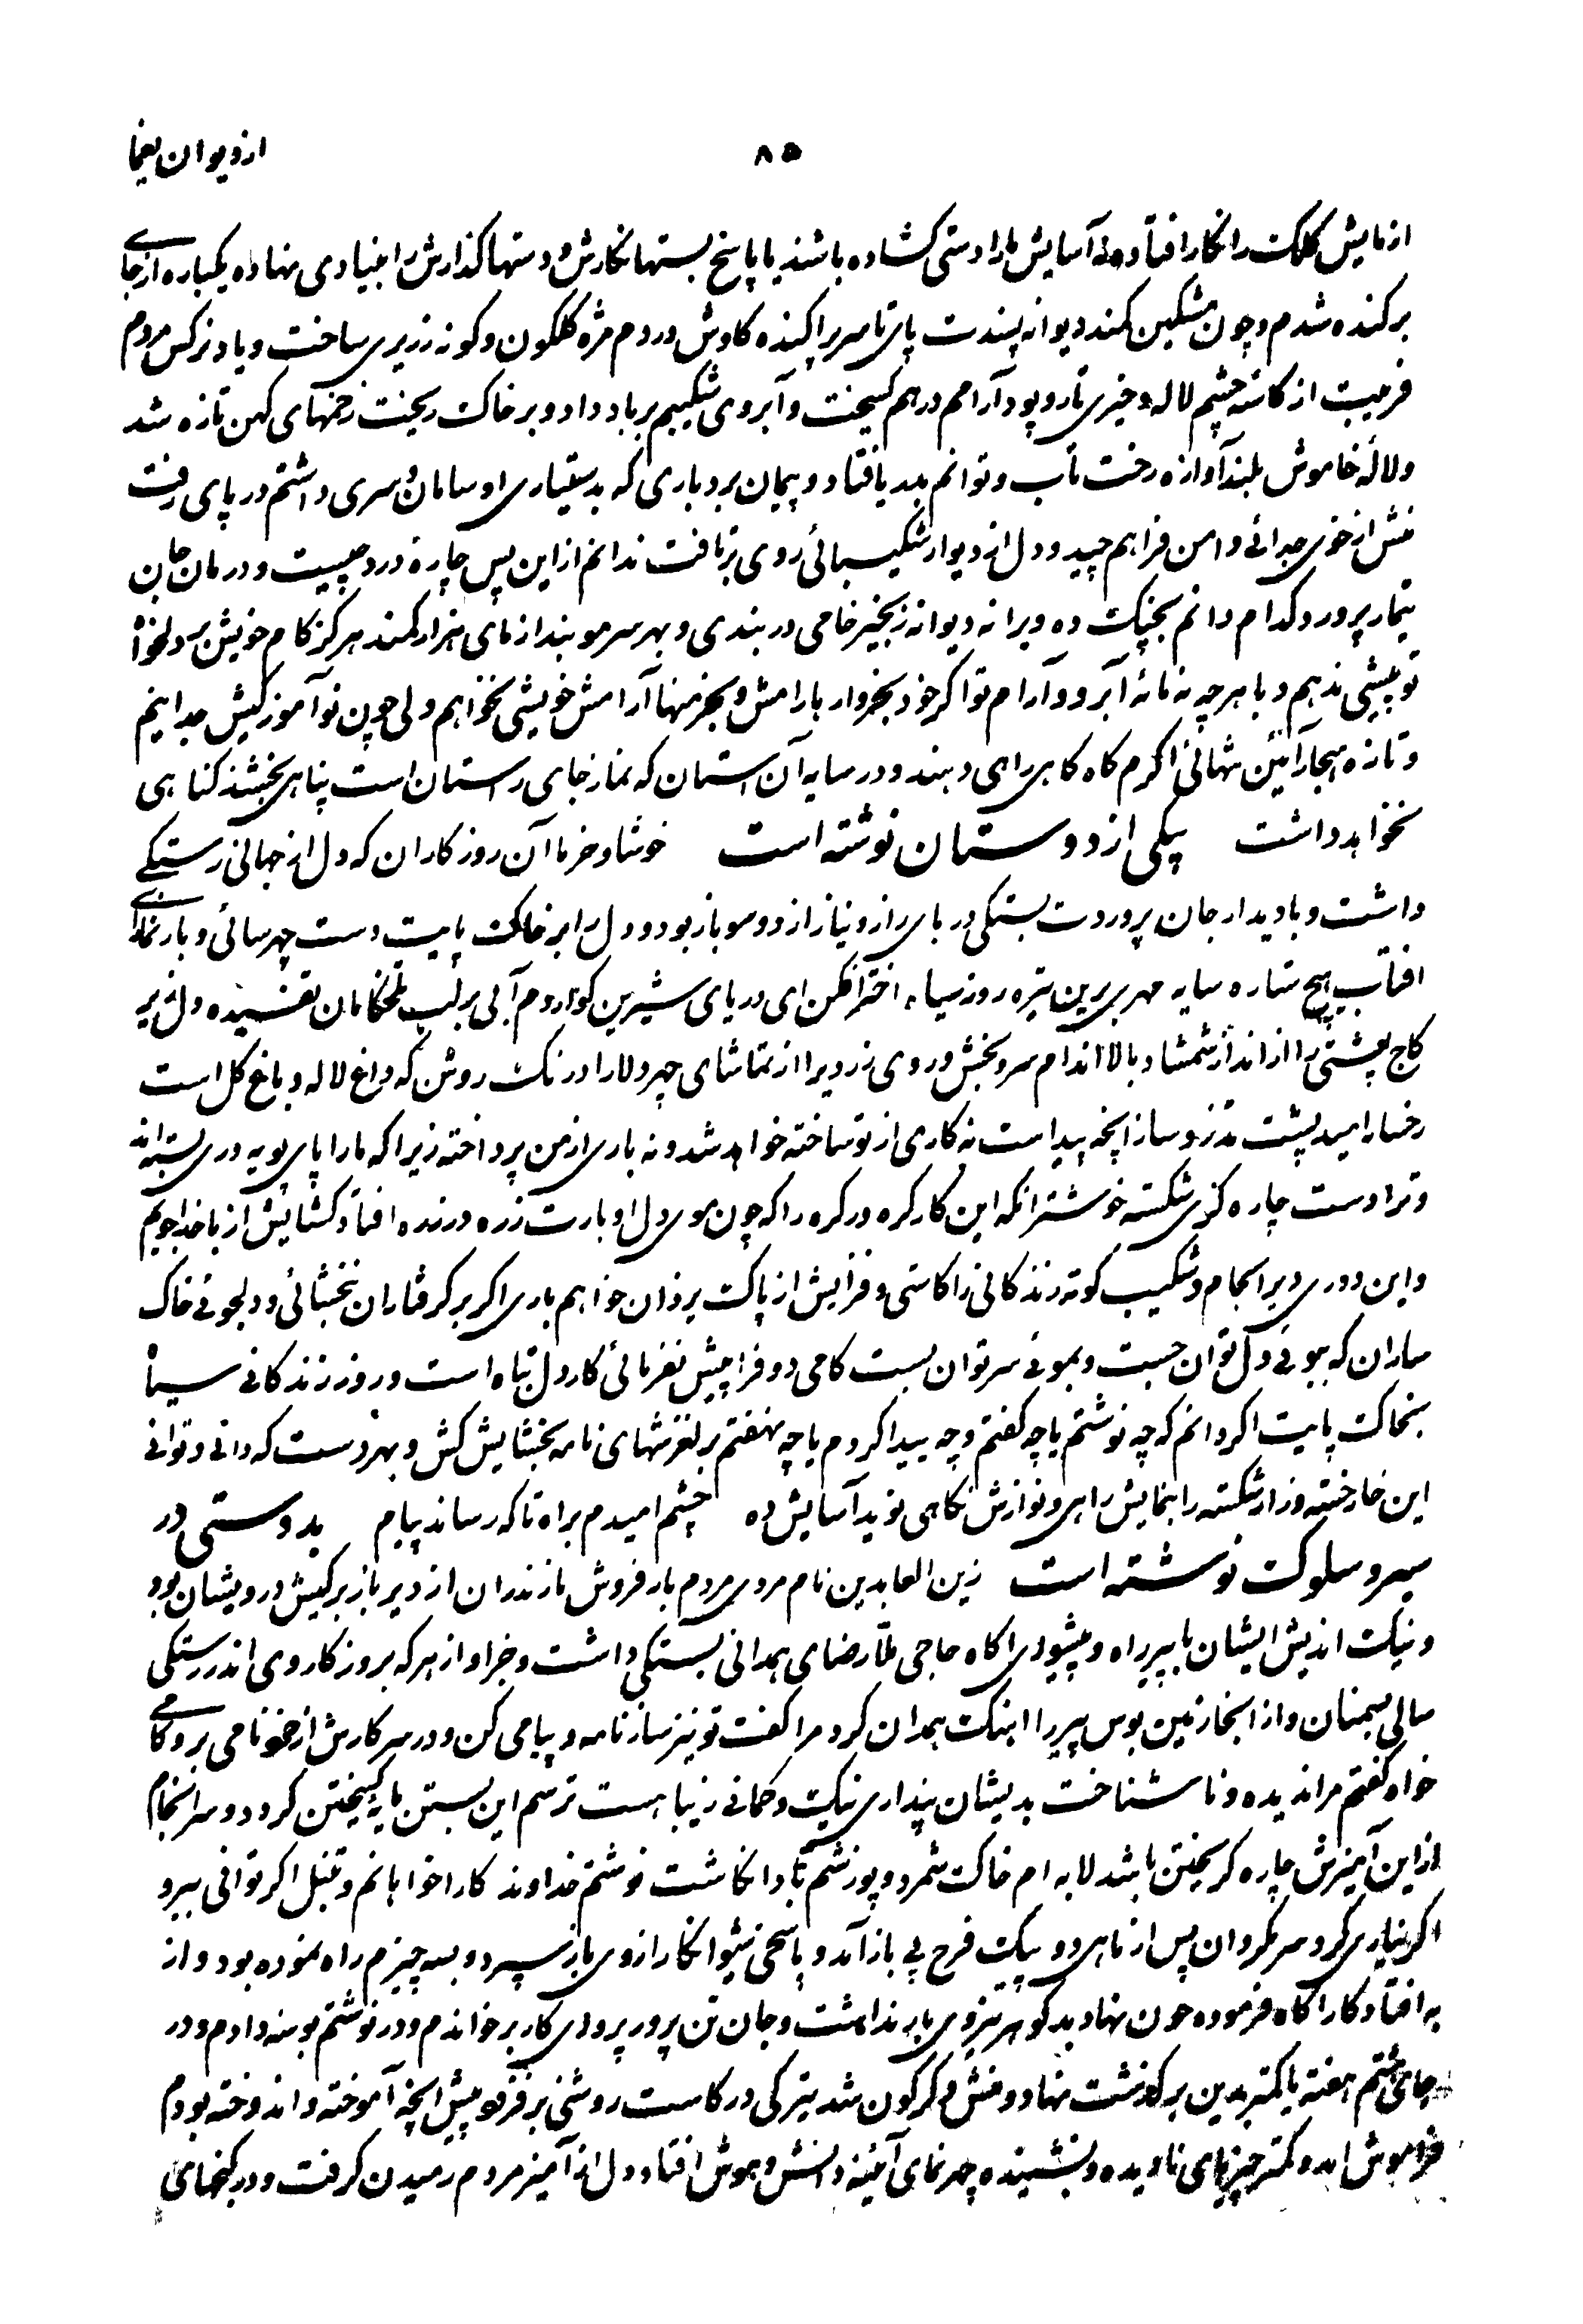 از دیوان یغما
۸۵
ازمایش کلکت را نکار افتاده نه آسایش را دستی کشاده باشند یا پاسخ بستها نکارش و دستها کذارش را بنیادی نهاده یکباره از جای
برکنده شدم و چون مشکین کمند دیوانه پسندت پای تا سر پراکنده کاوش دردم مژه کلکون و کونه زریری ساخت و یاد نرکس مردم
فریبت از کاسه چشم لاله و خیری تار و پود آرامم در هم کسیخت و آبروی شکیبم بر باد داد و بر خاک ریخت زخمهای کهن تازه شد
و لالهٔ خاموش بلند آوازه رخت تاب و توانم بدریا افتاد و پیمان بردباری که بدستیاری او سامان و سری داشتم در پای رفت
منش از خوی جدائی دامن فراهم چید و دل از دیوار شکیبائی روی برتافت ندانم از این پس چارهٔ درد چیست و درمان جان
تیمار پرورد کدام دانم بجنک ده ویرانه دیوانه زنجیر خامی در بندی و بهر سر مو بند ازمای هزار کمند هرکز کام خویش بر دلخواه
تو پیشی ندهم و با هرچه نه مانهٔ آبرو و آرام تو اکر خود بخروار بارامش و بخرمنها آرامش خویشی نخواهم ولی چون نوآموز کیش جدائیم
و تازه هنجار آئین تنهائی اکرم کاه کاهی راهی دهند و در سایه آن آستان که نماز جای راستان است پناهی بخشند کناهی
نخواهد داشت یکی از دوستان نوشته است خوشا و خرما آن روزکاران که دل از جهانی رستکی
داشت و با دیدار جان پروردت بستکی در بای راز و نیاز از دو سو باز بود و دل را بر خاکت پایت دست چهرسائی و بار نمازی
افتاب هیچ ستاره سایه مهری برین تیره روز سیاه اختر افکن ای دریای شیرین کوار دم آبی بر لب تلخکامان تفسیده دل ریز
کاج پشتی را از انداز شمشاد بالا اندام سرو بخش و روی زردیرا از تماشای چهر دلارا در نکت روش که داغ لاله و باغ کل است
رخسار امید پشت تذرو ساز انچه پیداست نه کاری از تو ساخته خواهد شد و نه باری از من پرداخته زیرا که ما را پای پویه دری بسته‌اند
و ترا دست چاره کزی شکسته خوشتر انکه این کار کره در کره را که چون موی دل اوبارت زره در زره افتاد کشایش از با خداجویم
و این دوری دیر انجام و شکیب کوته زندکانی را کاستی و فزایش از پاکت یزدان خواهم باری اکر بر کرفتاران نبخشائی و دلجوئی خاک
ساران که ببوئی دل توان جست و بموئی سر توان بست کامی دو فرا پیش نفرمائی کار دل تباه است و روز زندکانی سیاه
بخاکت پایت اکر دانم که چه نوشتم یا چه کفتم و چه پیدا کردم یا چه نهفتم بر لغزشهای نامه بخشایش کش و بهر دست که دانی و توانی
این خار خسته و زار شکسته را بنمایش راهی و نوازش نکاهی نوید آسایش ده چشم امیدم براه تا که رساند پیام بدوستی در
سیر و سلوکت نوشته است زین العابدین نام مردی مردم بارفروش مازندران از دیر باز بر کیش درویشان بود
و نیکت اندیش ایشان با پیر راه و پیشوای اکاه حاجی ملا رضای همدانی بستکی داشت و جز او از هرکه بروزکار وی اندر رستکی
سالی بسمنان و از انجا زمین بوس پیر را اهنکت همدان کرد مرا کفت تو نیز ساز نامه و پیامی کن و در سر کارش از خود نامی بر و کامی
خواه کفتم مرا ندیده و ناشناخت بدیشان پنداری نیکت و کمانی زیبا هست ترسم این بستن مایه کسیختن کردد و سرانجام
از این آمیزش چاره کریختن باشد لابه ام خاکت شمرد و پوزشم باد انکاشت نوشتم خداوند کارا خواهانم و تنبل اکر توانی بیرو
اکر نیازی کرد سر مکردان پس از ماهی دو پیکت فرخ پی باز آمد و پاسخی شیوا نکار از وی باز سپرد و بسه چیزم راه نموده بود و از
به افتاد کار اکاه فرموده چون نهاد بد کوهر نیروی بار نداشت و جان تن پرور پروای کار بر خواندم و در نوشتم بوسه دادم و در
جای هشتم هفته یا کمتر بدین بر کذشت نهاد و منش دکرکون شد تیرکی در کاست روشنی بر فزود پیش انچه آموخته و اندوخته بودم
فراموش امد و کمتر چیزهای نادیده و نشنیده چهر نمای آئینه دانش و هوش افتاد دل از آمیز مردم رمیدن کرفت و در کنجهای